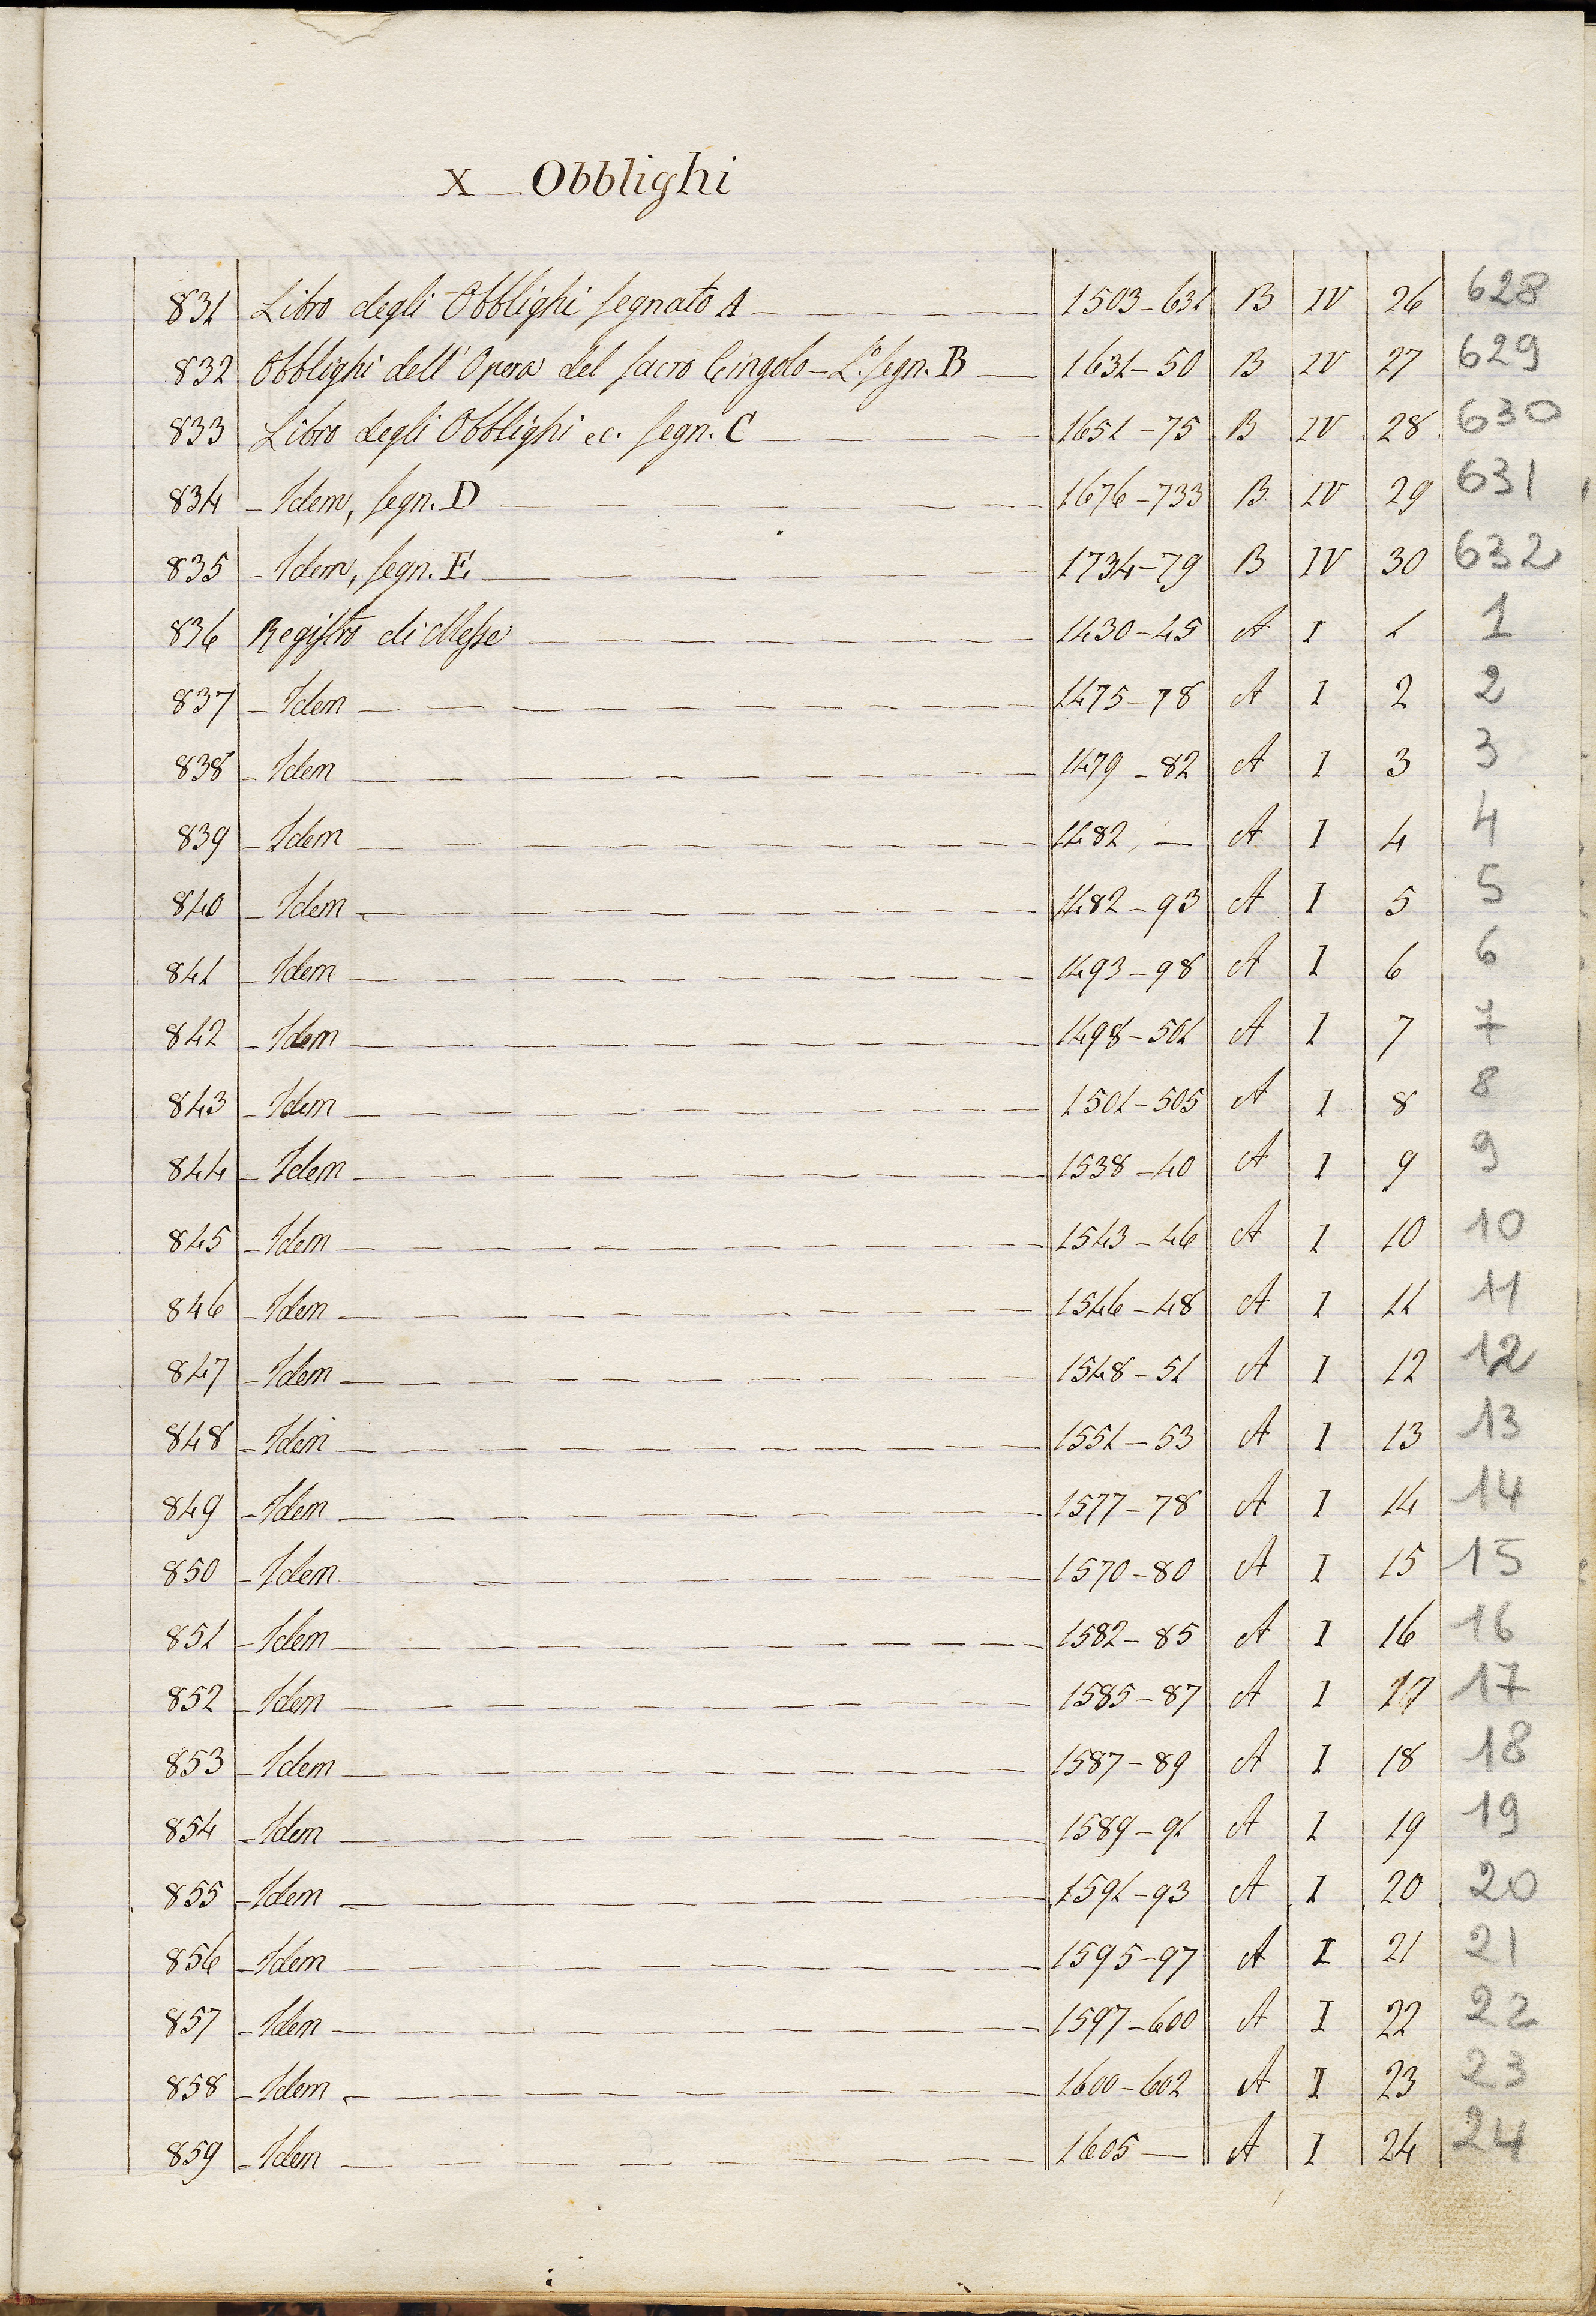 X — Obblighi
831 Libro degli Obblighi segnato A — 1503–631 B IV 26 628
832 Obblighi dell'Opera del sacro Cingolo – L.º segn. B — 1631–50 B IV 27 629
833 Libro degli Obblighi ec. segn. C — 1651–75 B IV 28 630
834 – Idem, segn. D — 1676–733 B IV 29 631
835 – Idem, segn. E — 1734–79 B IV 30 632
836 Registro di Messe — 1430–45 A I 1 1
837 – Idem — 1475–78 A I 2 2
838 – Idem — 1479–82 A I 3 3
839 – Idem — 1482 — A I 4 4
840 – Idem — 1482–93 A I 5 5
841 – Idem — 1493–98 A I 6 6
842 – Idem — 1498–501 A I 7 7
843 – Idem — 1501–505 A I 8 8
844 – Idem — 1538–40 A I 9 9
845 – Idem — 1543–46 A I 10 10
846 – Idem — 1546–48 A I 11 11
847 – Idem — 1548–51 A I 12 12
848 – Idem — 1551–53 A I 13 13
849 – Idem — 1577–78 A I 14 14
850 – Idem — 1570–80 A I 15 15
851 – Idem — 1582–85 A I 16 16
852 – Idem — 1585–87 A I 17 17
853 – Idem — 1587–89 A I 18 18
854 – Idem — 1589–91 A I 19 19
855 – Idem — 1591–93 A I 20 20
856 – Idem — 1595–97 A I 21 21
857 – Idem — 1597–600 A I 22 22
858 – Idem — 1600–602 A I 23 23
859 – Idem — 1605 — A I 24 24